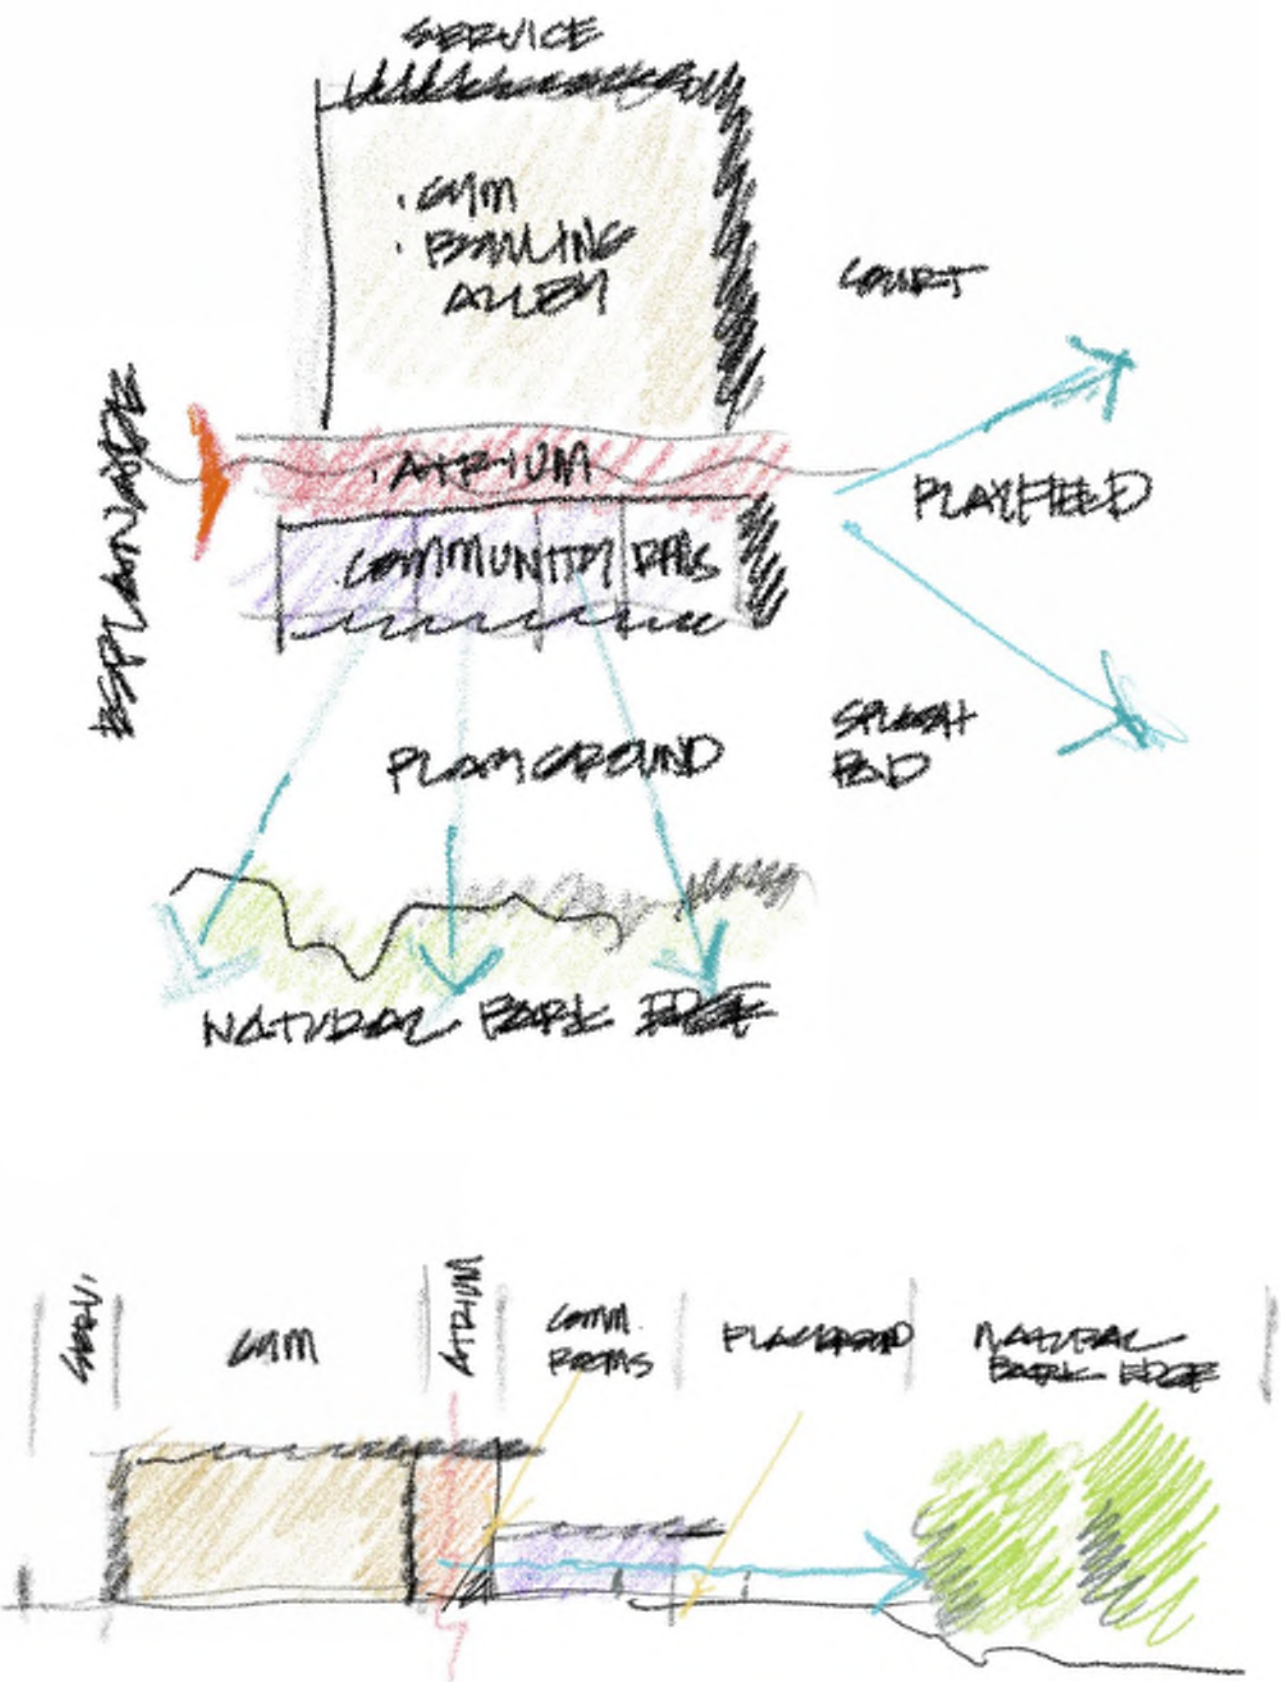 SERVICE
· GYM
· BOWLING
ALLEY
COURT
ESPLANADE
· ATRIUM
PLAYFIELD
· COMMUNITY RMS
SPLASH
PAD
PLAYGROUND
NATURAL PARK EDGE
SERV.
GYM
ATRIUM
COMM.
ROOMS
PLAYGROUND
NATURAL
PARK EDGE